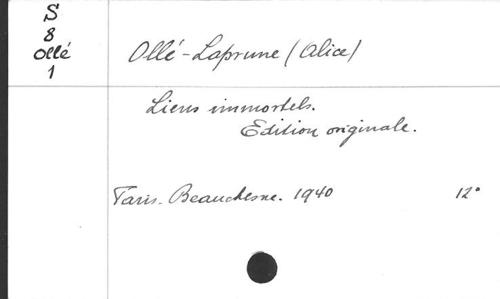 S
8
Ollé
1
Ollé-Laprune (Alice)
Liens immortels.
Edition originale.
Paris. Beauchesne. 1940 12°